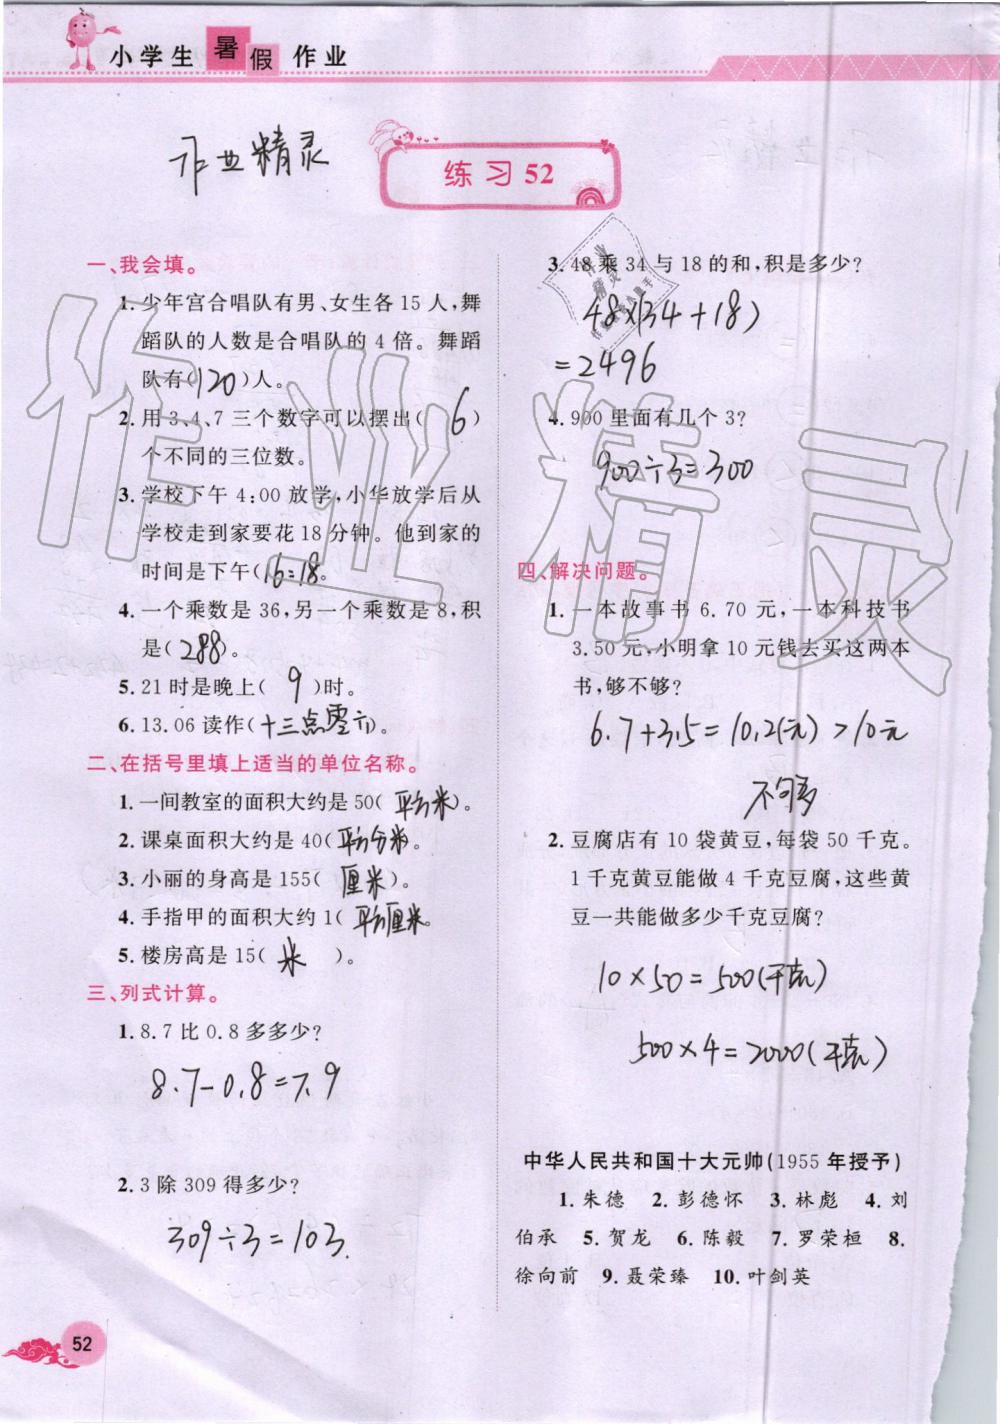 小学生暑假作业
作业精灵
练习52
一、我会填。
1. 少年宫合唱队有男、女生各15人,舞
蹈队的人数是合唱队的4倍。舞蹈
队有(120)人。
2. 用3、4、7三个数字可以摆出( 6 )
个不同的三位数。
3. 学校下午4:00放学,小华放学后从
学校走到家要花18分钟。他到家的
时间是下午(16:18)。
4. 一个乘数是36,另一个乘数是8,积
是(288)。
5. 21时是晚上( 9 )时。
6. 13.06读作(十三点零六)。
二、在括号里填上适当的单位名称。
1. 一间教室的面积大约是50(平方米)。
2. 课桌面积大约是40(平方分米)。
3. 小丽的身高是155(厘米)。
4. 手指甲的面积大约1(平方厘米)。
5. 楼房高是15( 米 )。
三、列式计算。
1. 8.7比0.8多多少?
8.7-0.8=7.9
2. 3除309得多少?
309÷3=103.
3. 48乘34与18的和,积是多少?
48×(34+18)
=2496
4. 900里面有几个3?
900÷3=300
四、解决问题。
1. 一本故事书6.70元,一本科技书
3.50元,小明拿10元钱去买这两本
书,够不够?
6.7+3.5=10.2(元)>10元
不够
2. 豆腐店有10袋黄豆,每袋50千克。
1千克黄豆能做4千克豆腐,这些黄
豆一共能做多少千克豆腐?
10×50=500(千克)
500×4=2000(千克)
中华人民共和国十大元帅(1955年授予)
1. 朱德 2. 彭德怀 3. 林彪 4. 刘
伯承 5. 贺龙 6. 陈毅 7. 罗荣桓 8.
徐向前 9. 聂荣臻 10. 叶剑英
52
作业精灵